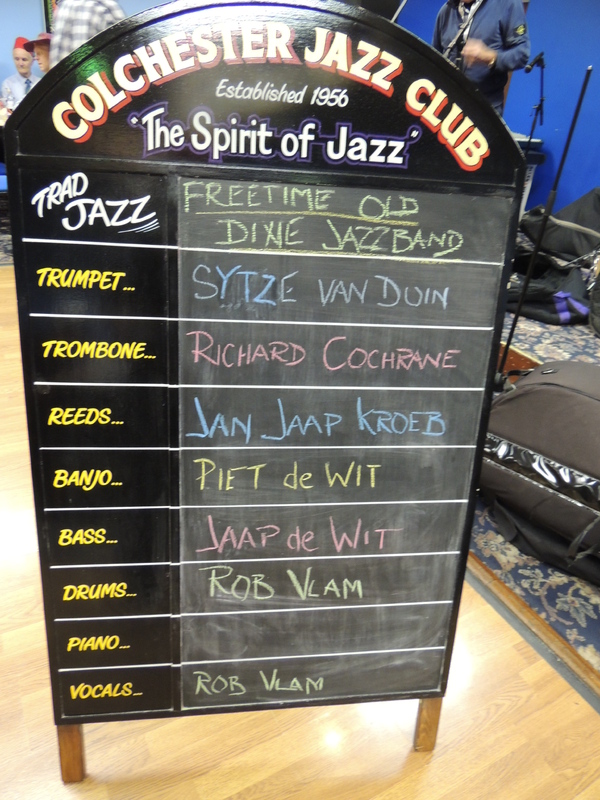 COLCHESTER JAZZ CLUB
Established 1956
"The Spirit of Jazz"
TRAD JAZZ
FREETIME OLD
DIXIE JAZZBAND
TRUMPET... SYTZE VAN DUIN
TROMBONE... RICHARD COCHRANE
REEDS... JAN JAAP KROEB
BANJO... PIET de WIT
BASS... JAAP de WIT
DRUMS... ROB VLAM
PIANO...
VOCALS... ROB VLAM